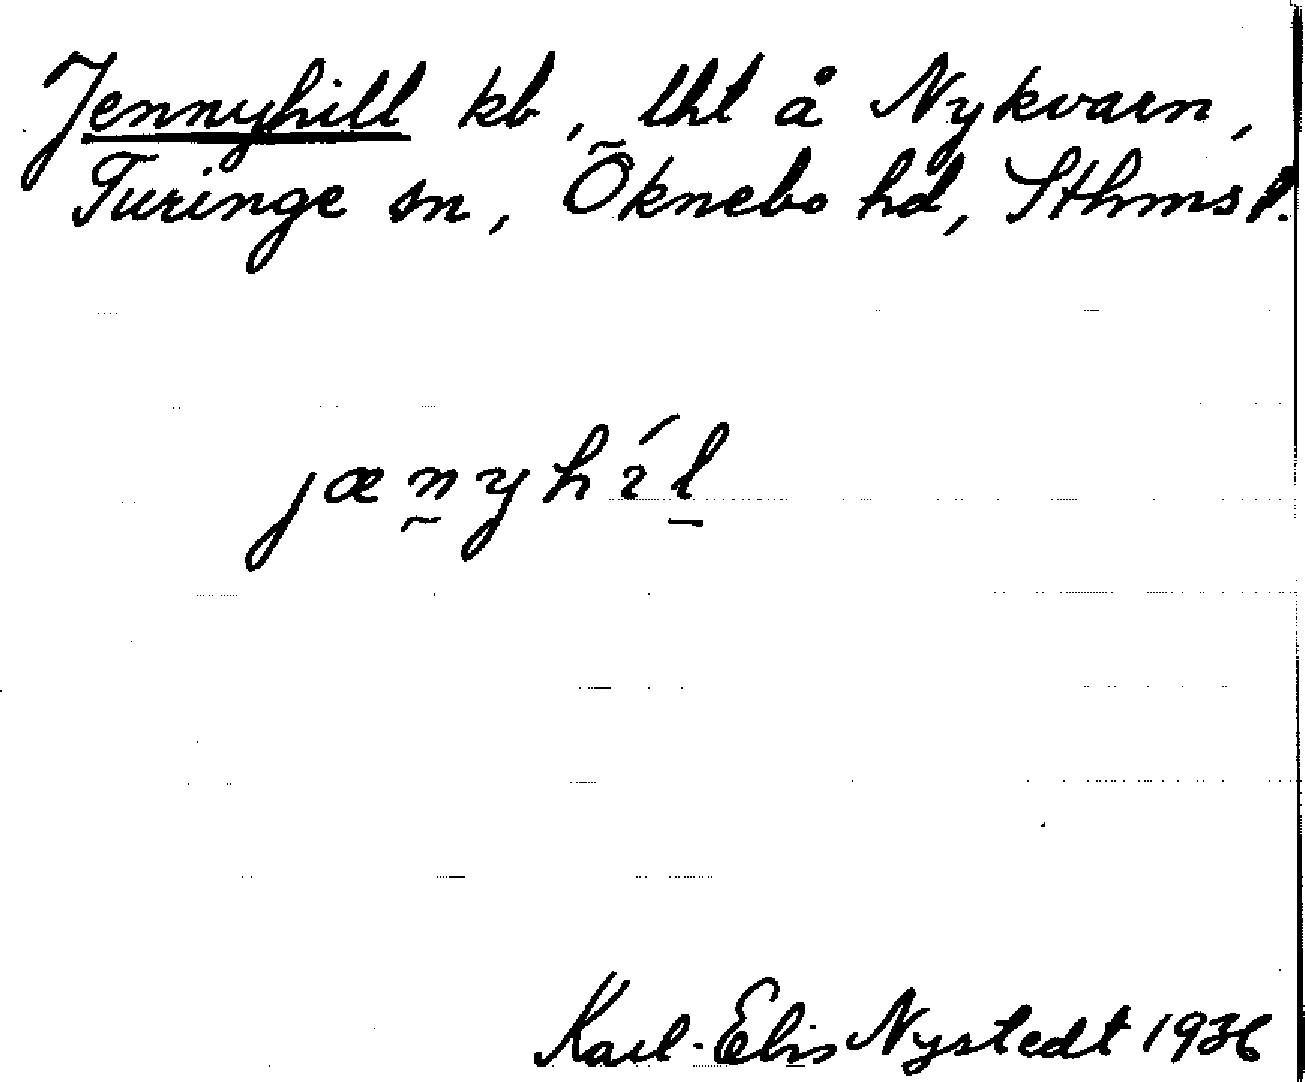 Jennyhill kb, lht å Nykvarn,
Turinge sn, Öknebo hd, Sthms l.
jænyhíl
Karl-Elis Nystedt 1936